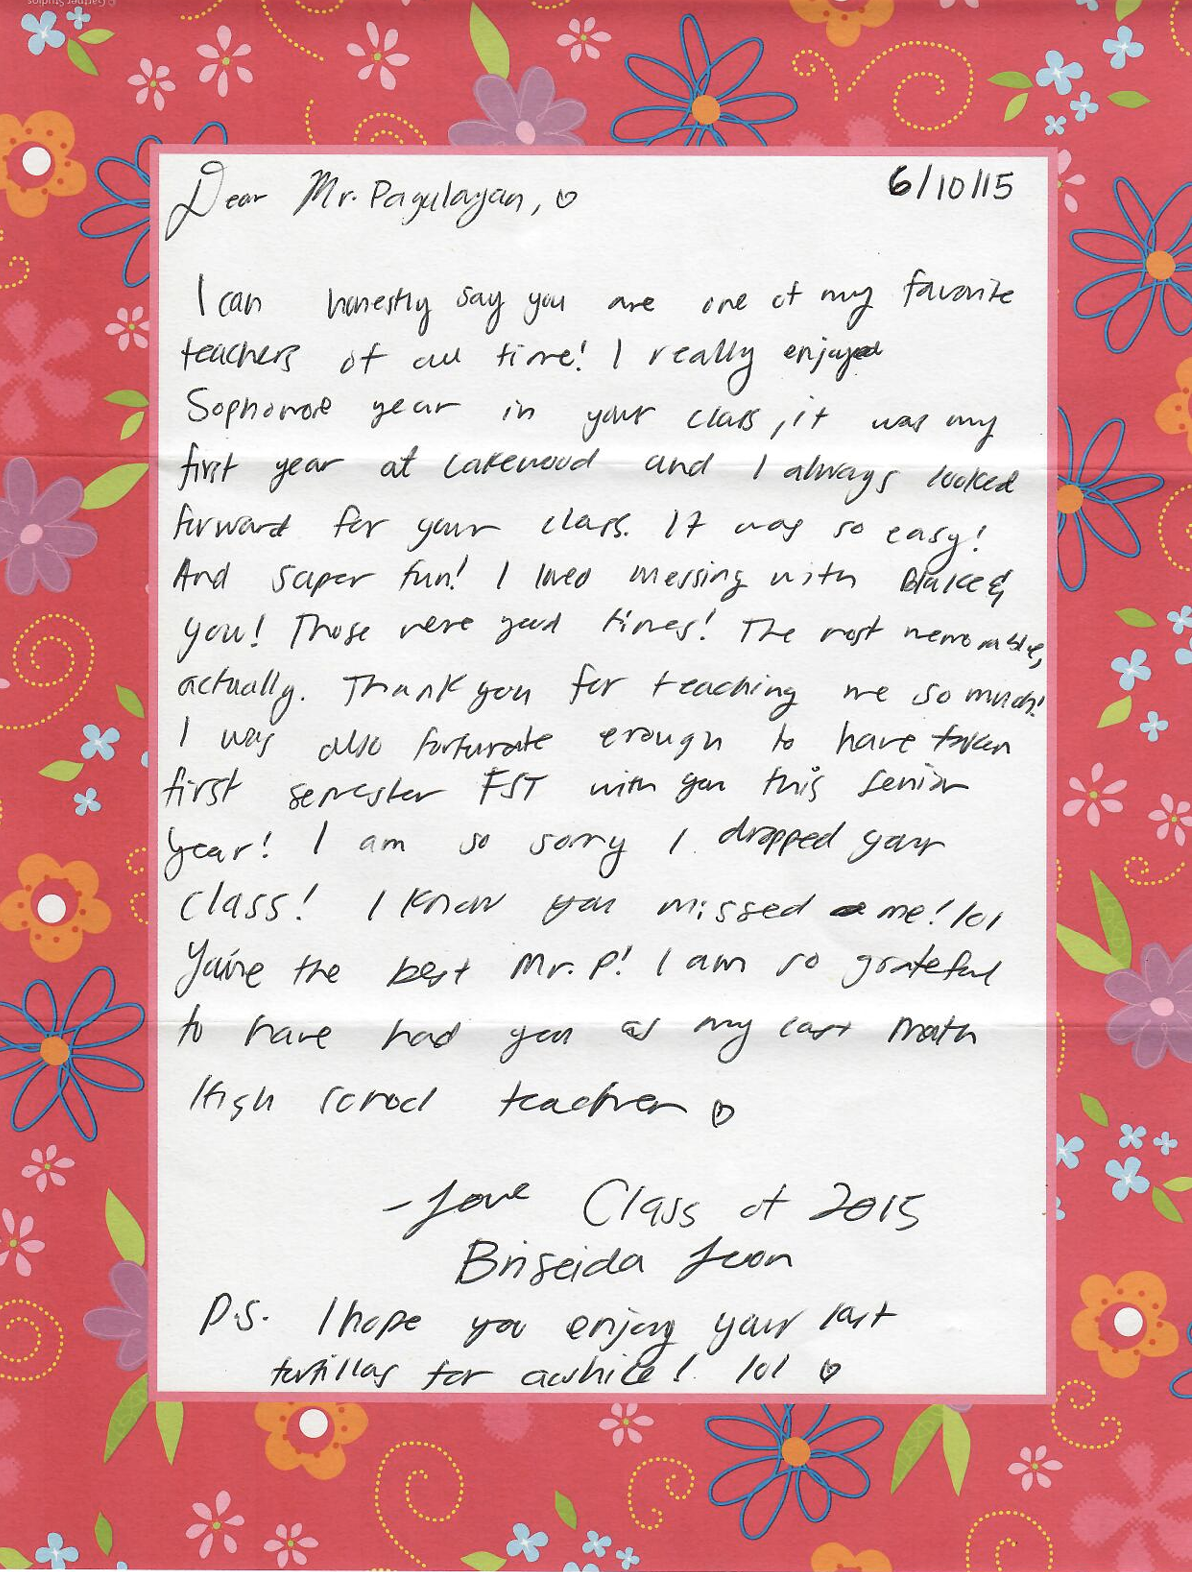 © Gartner Studios
Dear Mr. Pagulayan, ♡ 6/10/15
I can honestly say you are one of my favorite
teachers of all time! I really enjoyed
Sophomore year in your class, it was my
first year at Lakewood and I always looked
forward for your class. It was so easy!
And super fun! I loved messing with Blake &
you! Those were good times! The most memorable,
actually. Thank you for teaching me so much!
I was also fortunate enough to have taken
first semester FST with you this senior
year! I am so sorry I dropped your
class! I know you missed me! lol
You're the best Mr. P! I am so grateful
to have had you as my last math
High school teacher ♡
- Love Class of 2015
Briseida Leon
P.S. I hope you enjoy your last
tortillas for awhile! lol ♡